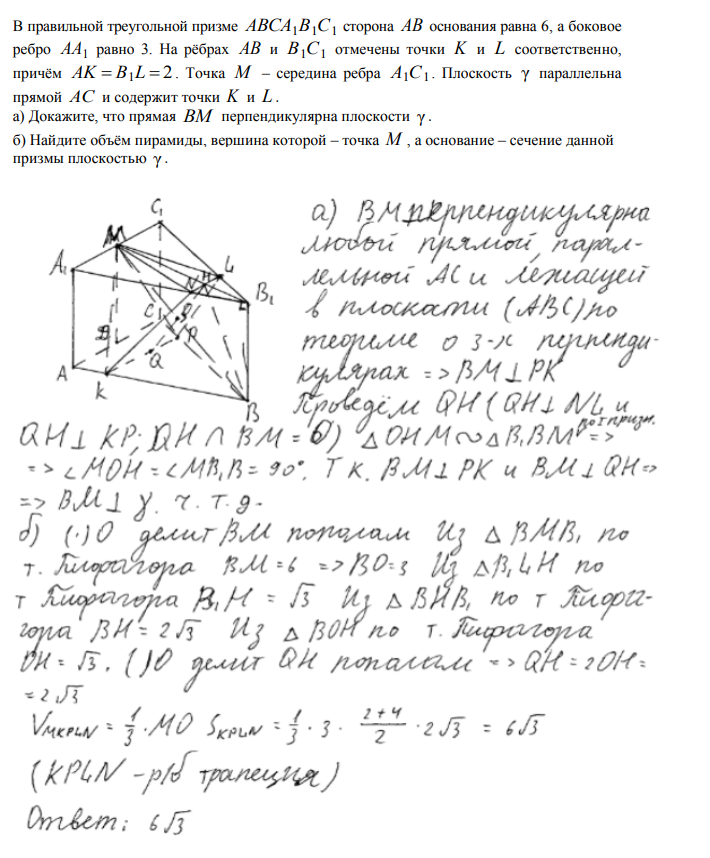 В правильной треугольной призме ABCA₁B₁C₁ сторона AB основания равна 6, а боковое
ребро AA₁ равно 3. На рёбрах AB и B₁C₁ отмечены точки K и L соответственно,
причём AK = B₁L = 2. Точка M – середина ребра A₁C₁. Плоскость γ параллельна
прямой AC и содержит точки K и L.
а) Докажите, что прямая BM перпендикулярна плоскости γ.
б) Найдите объём пирамиды, вершина которой – точка M, а основание – сечение данной
призмы плоскостью γ.
C₁
M
L
A₁
N
H
B₁
C
P
Q
A
K
B
а) BM перпендикулярна
любой прямой, парал-
лельной AC и лежащей
в плоскати (ABC) по
теореме о 3-х перпенди-
кулярах => BM ⊥ PK
Проведём QH (QH ⊥ NL и
QH ⊥ KP; QH ∩ BM = O) △OHM ∾ △B₁BM =>
=> ∠MOH = ∠MB₁B = 90°. Т к. BM ⊥ PK и BM ⊥ QH =>
=> BM ⊥ γ. ч. т. д.
б) (·) O делит BM пополам Из △ BMB₁ по
т. Пифагора BM = 6 => BO = 3 Из △B₁LH по
т Пифагора B₁H = √3 Из △ BHB₁ по т Пифа-
гора BH = 2√3 Из △ BOH по т. Пифагора
OH = √3. (·)O делит QH пополам => QH = 2OH =
= 2√3
V_MKPLN = 1/3 · MO S_KPLN = 1/3 · 3 · (2+4)/2 · 2√3 = 6√3
(KPLN - р/б трапеция)
Ответ: 6√3